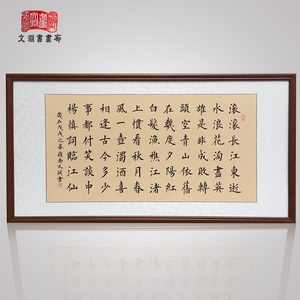 文淵書畫廊
滾滾長江東逝
水浪花淘盡英
雄是非成敗轉
頭空青山依舊
在幾度夕陽紅
白髮漁樵江渚
上慣看秋月春
風一壺濁酒喜
相逢古今多少
事都付笑談中
楊慎詞臨江仙
戊戌之春